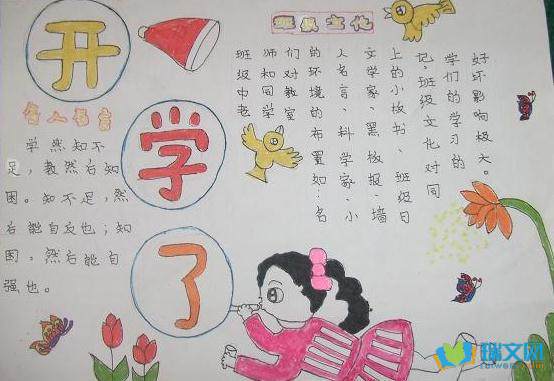 开
学
了
班级文化
名人名言
学然知不
足,教然后知
困。知不足,然
后能自反也;知
困,然后能自
强也。
班级中老
师和同学
们对教室
的环境的布置如:名
人名言、科学家、小
文学家、黑板报、墙
上的小板书、班级日
记。班级文化对同
学们的学习的
好坏影响极大。
瑞文网